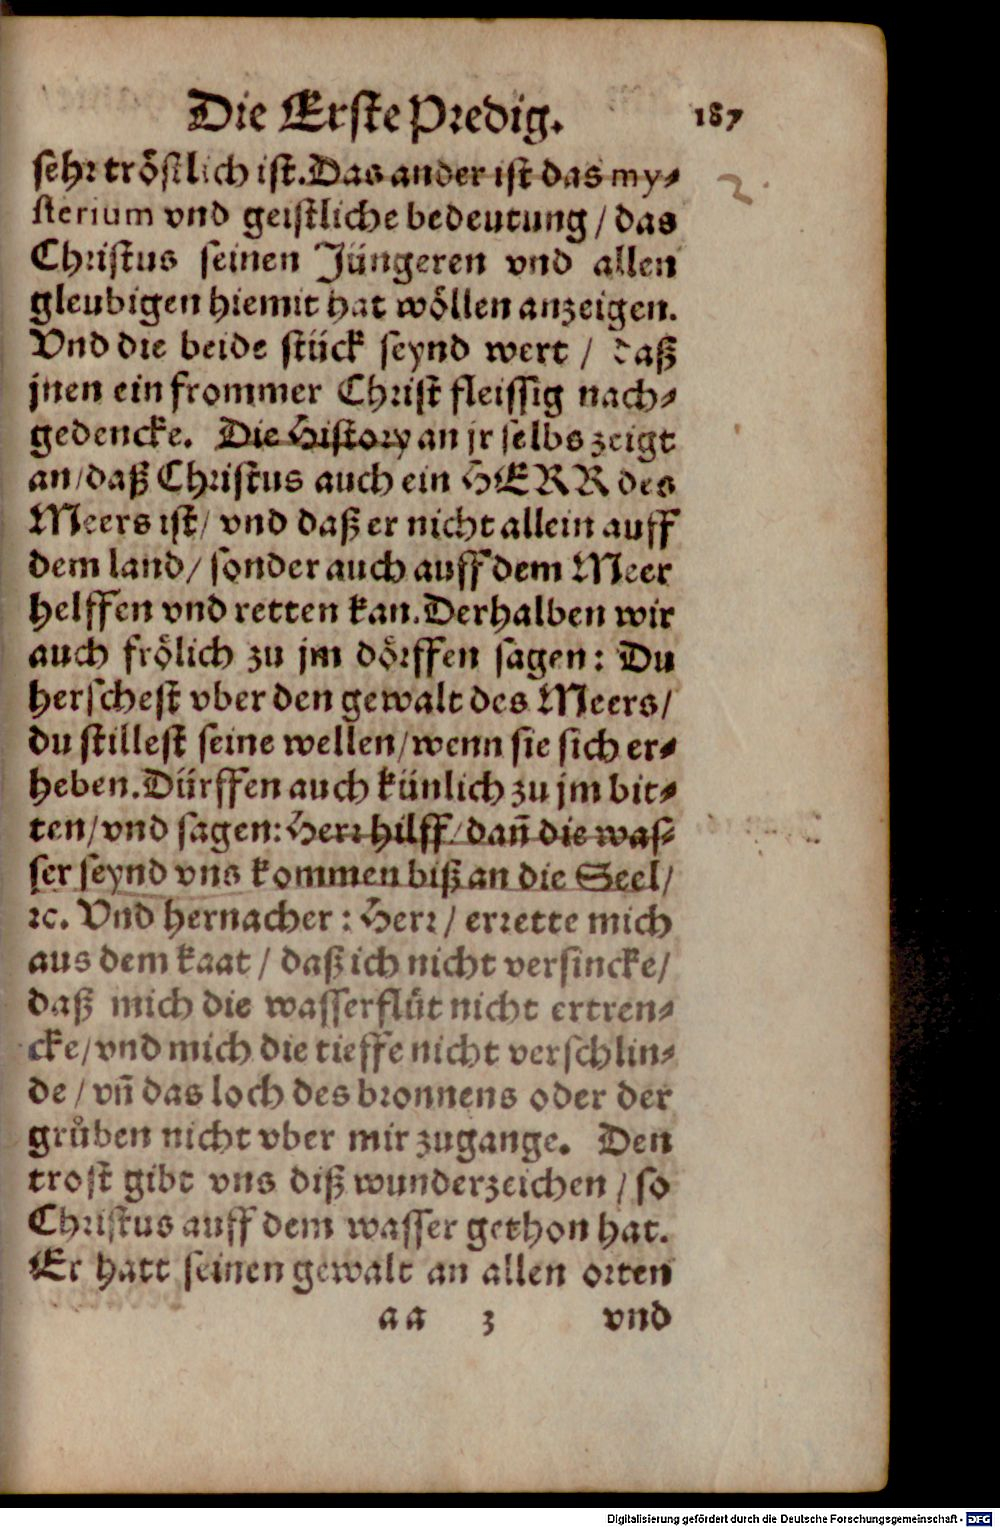 Die Erste Predig. 187
sehr tröstlich ist. Das ander ist das my⸗ 2.
sterium vnd geistliche bedeutung / das
Christus seinen Jüngeren vnd allen
gleubigen hiemit hat wöllen anzeigen.
Vnd die beide stück seynd wert / daß
jnen ein frommer Christ fleissig nach⸗
gedencke. Die History an jr selbs zeigt
an / daß Christus auch ein HERR des
Meers ist / vnd daß er nicht allein auff
dem land / sonder auch auff dem Meer
helffen vnd retten kan. Derhalben wir
auch frölich zu jm dörffen sagen: Du
herschest vber den gewalt des Meers /
du stillest seine wellen / wenn sie sich er⸗
heben. Dürffen auch künlich zu jm bit⸗
ten / vnd sagen: Herr hilff / dañ die was⸗
ser seynd vns kommen biß an die Seel /
ꝛc. Vnd hernacher: Herr / errette mich
aus dem kaat / daß ich nicht versincke /
daß mich die wasserflüt nicht ertren⸗
cke / vnd mich die tieffe nicht verschlin⸗
de / vñ das loch des bronnens oder der
grůben nicht vber mir zugange. Den
trost gibt vns diß wunderzeichen / so
Christus auff dem wasser gethon hat.
Er hatt seinen gewalt an allen orten
aa 3 vnd
Digitalisierung gefördert durch die Deutsche Forschungsgemeinschaft - DFG